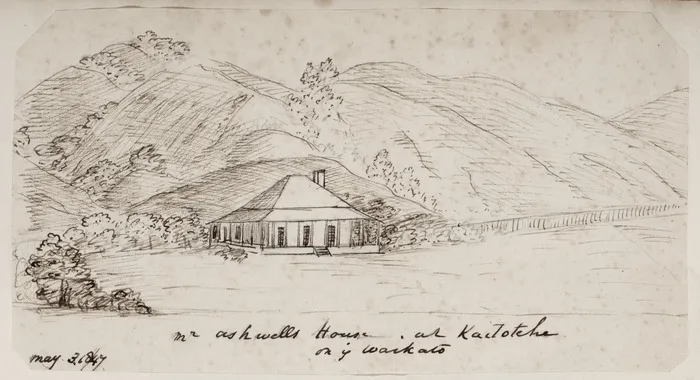 mr ashwells House . at Kaitotche
on y Waikato
may 3, 1847.